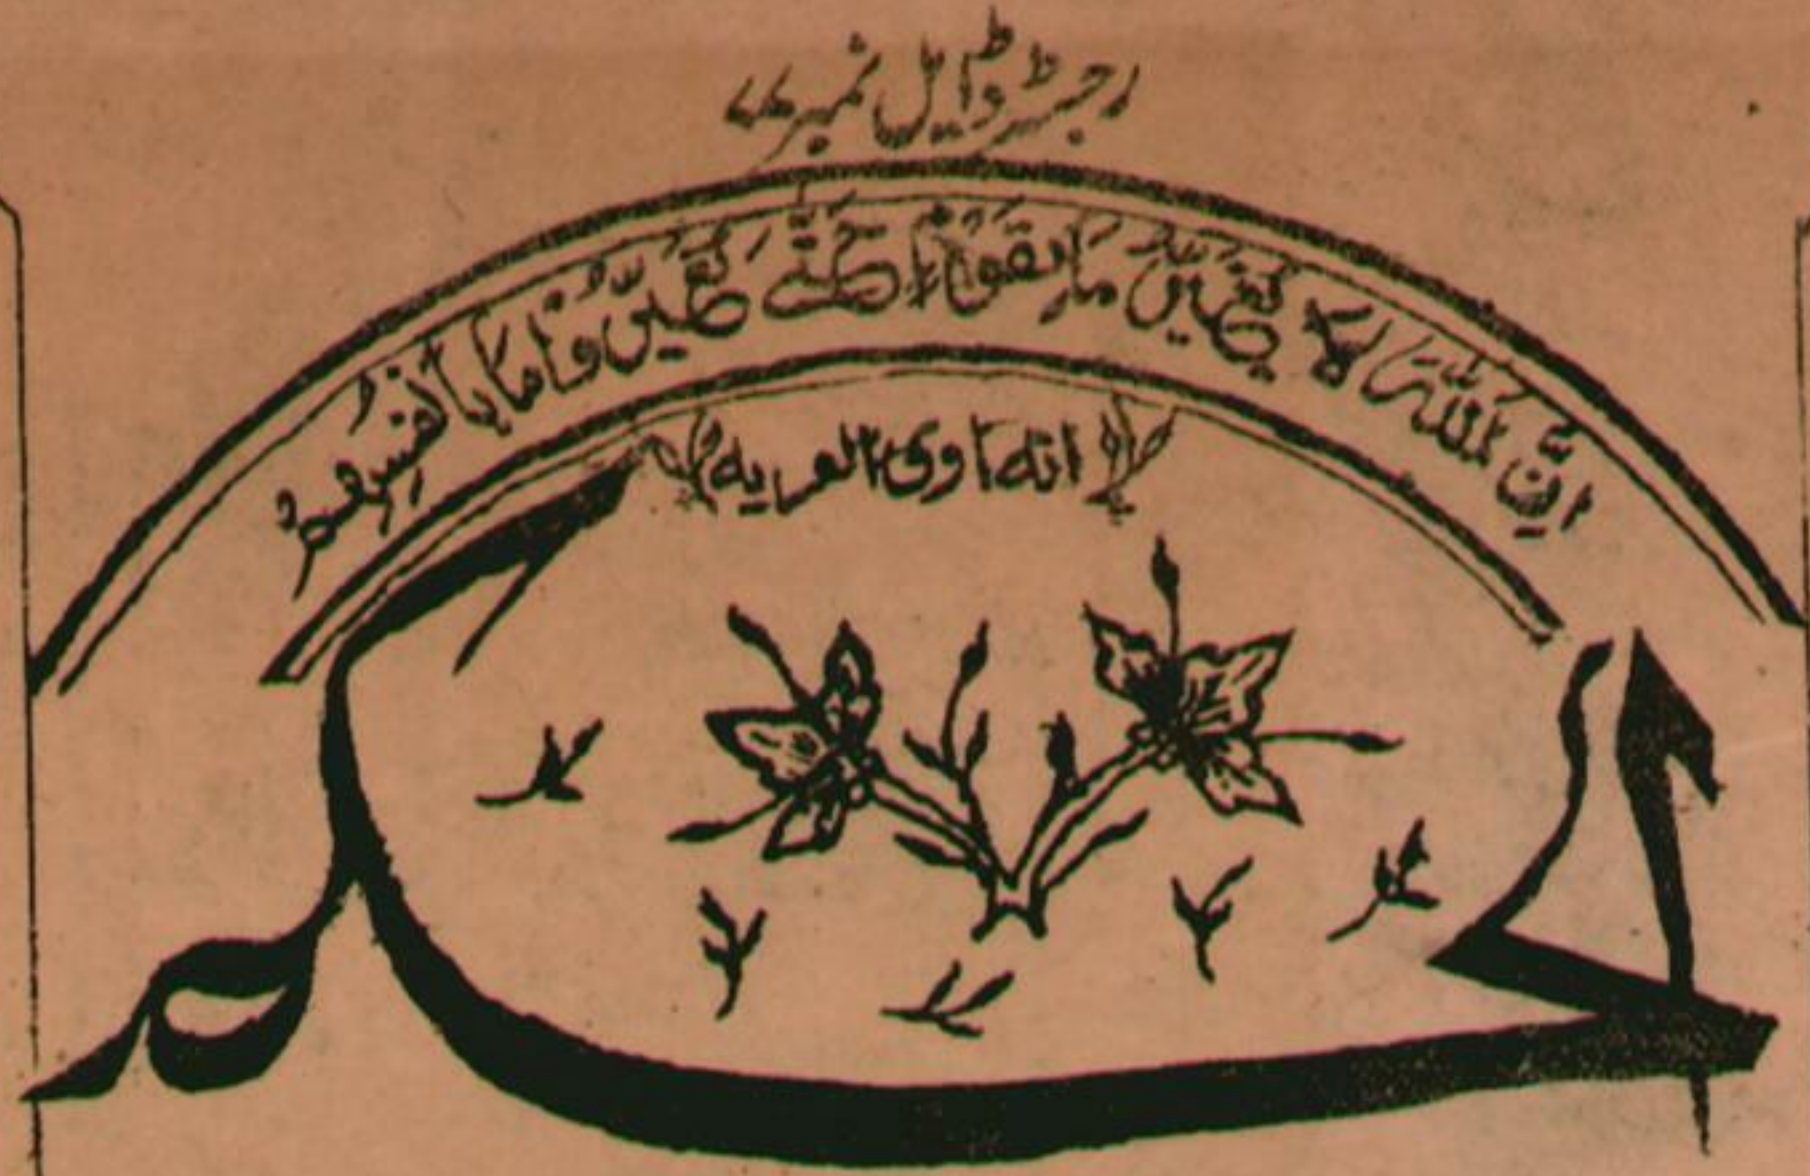 رجسٹرڈ ایل نمبر ۷۷
اِنَّ اللّٰہَ لَا یُغَیِّرُ مَا بِقَوْمٍ حَتّٰے یُغَیِّرُوْا مَا بِاَنْفُسِہِمْ
انہ اوی القریہ
الحکم